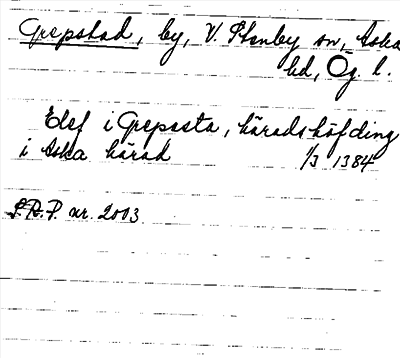 Grepstad, by, V. Stenby sn, Aska
hd, Ög. l.
Elef i Greposta, häradshöfding
i Aska härad 1/3 1384
S.R.P. nr. 2003.